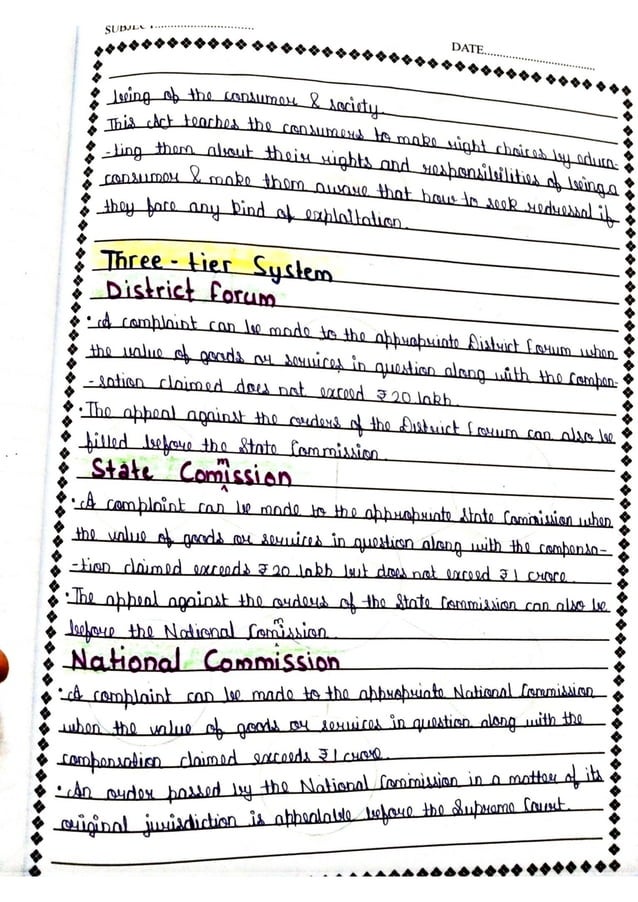 SUBJECT
DATE
being of the consumer & society.
This Act teaches the consumers to make right choices by educa-
-ting them about their rights and responsibilities of being a
consumer & make them aware that how to seek redressal if
they face any kind of explaitation.
Three-tier System
District Forum
• A complaint can be made to the appropriate District Forum when
the value of goods or services in question along with the compen-
-sation claimed does not exceed ₹20 lakh.
• The appeal against the orders of the District Forum can also be
filled before the State Commission.
State Commission
• A complaint can be made to the appropriate State Commission when
the value of goods or services in question along with the compensa-
-tion claimed exceeds ₹20 lakh but does not exceed ₹1 crore.
• The appeal against the orders of the State Commission can also be
before the National Commission.
National Commission
• A complaint can be made to the appropriate National Commission
when the value of goods or services in question along with the
compensation claimed exceeds ₹1 crore.
• An order passed by the National Commission in a matter of its
original jurisdiction is appealable before the Supreme Court.